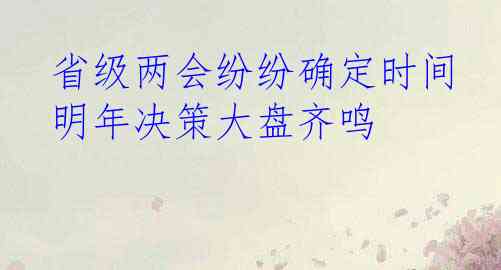 省级两会纷纷确定时间
明年决策大盘齐鸣